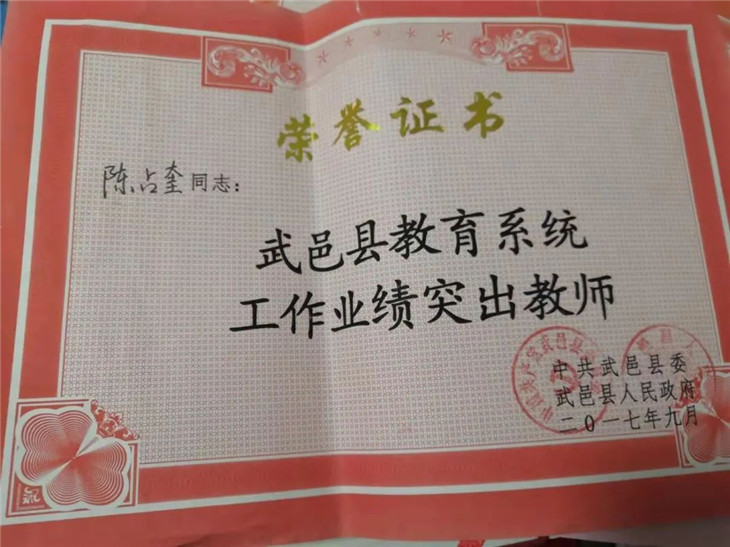 荣誉证书
陈占奎同志：
武邑县教育系统
工作业绩突出教师
中共武邑县委
武邑县人民政府
二〇一七年九月